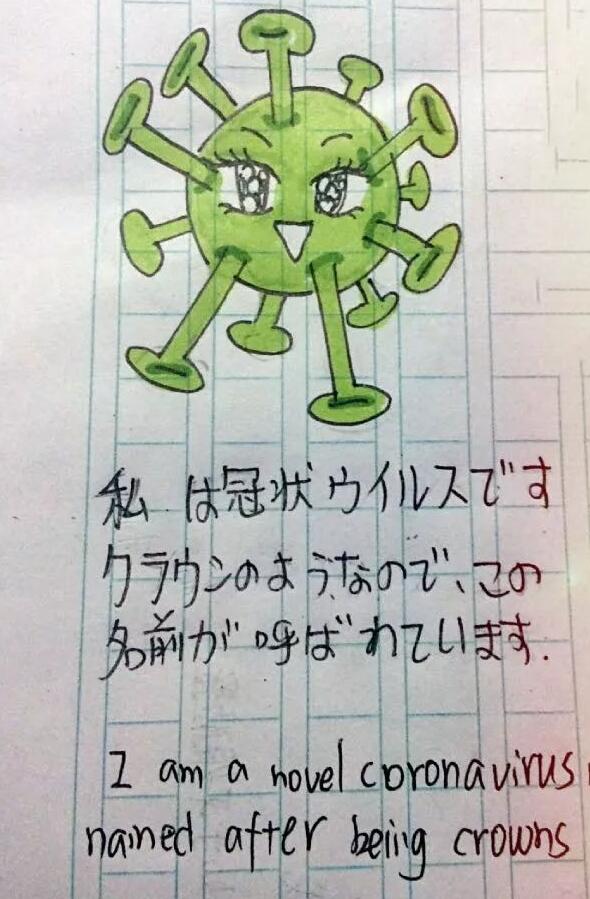 私は冠状ウイルスです
クラウンのようなので、この
名前が呼ばれています.
I am a novel coronavirus
named after being crowns